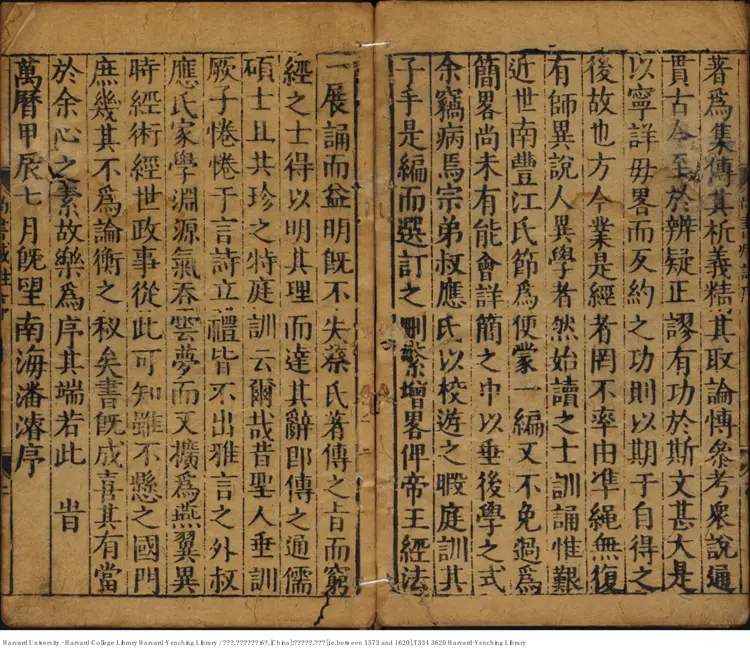 著爲集傳其析義精其取論愽叅考衆說通
貫古今至於辨疑正謬有功於斯文甚大是
以寧詳毋畧而反約之功則以期于自得之
後故也方今業是經者罔不率由準繩無復
有師異說人異學者然始讀之士訓誦惟艱
近世南豐江氏節爲便蒙一編又不免過爲
簡畧尚未有能會詳簡之中以垂後學之式
余竊病焉宗弟叔應氏以校遊之暇庭訓其
子手是編而選訂之刪蘩增畧俾帝王經法
一展誦而益明旣不失蔡氏著傳之旨而窮
經之士得以明其理而達其辭即傳之通儒
碩士且共珍之特庭訓云爾哉昔聖人垂訓
厥子惓惓于言詩立禮皆不出雅言之外叔
應氏家學淵源氣吞雲夢而又擴爲燕翼異
時經術經世政事從此可知雖不懸之國門
庶幾其不爲論衡之秘矣書旣成喜其有當
於余心之素故樂爲序其端若此 旹
萬曆甲辰七月旣望南海潘濬序
Harvard University - Harvard College Library Harvard-Yenching Library / ???.??????:6?.[China]:?????,???[i.e.between 1573 and 1620],T334 3620 Harvard-Yenching Library